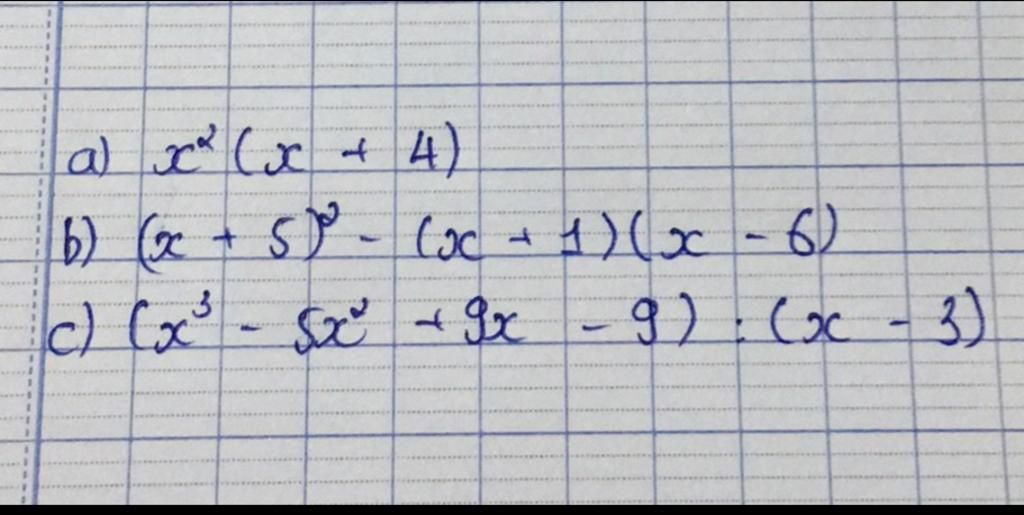 a) x² (x + 4)
b) (x + 5)² - (x + 1)(x - 6)
c) (x³ - 5x² + 9x - 9) : (x - 3)